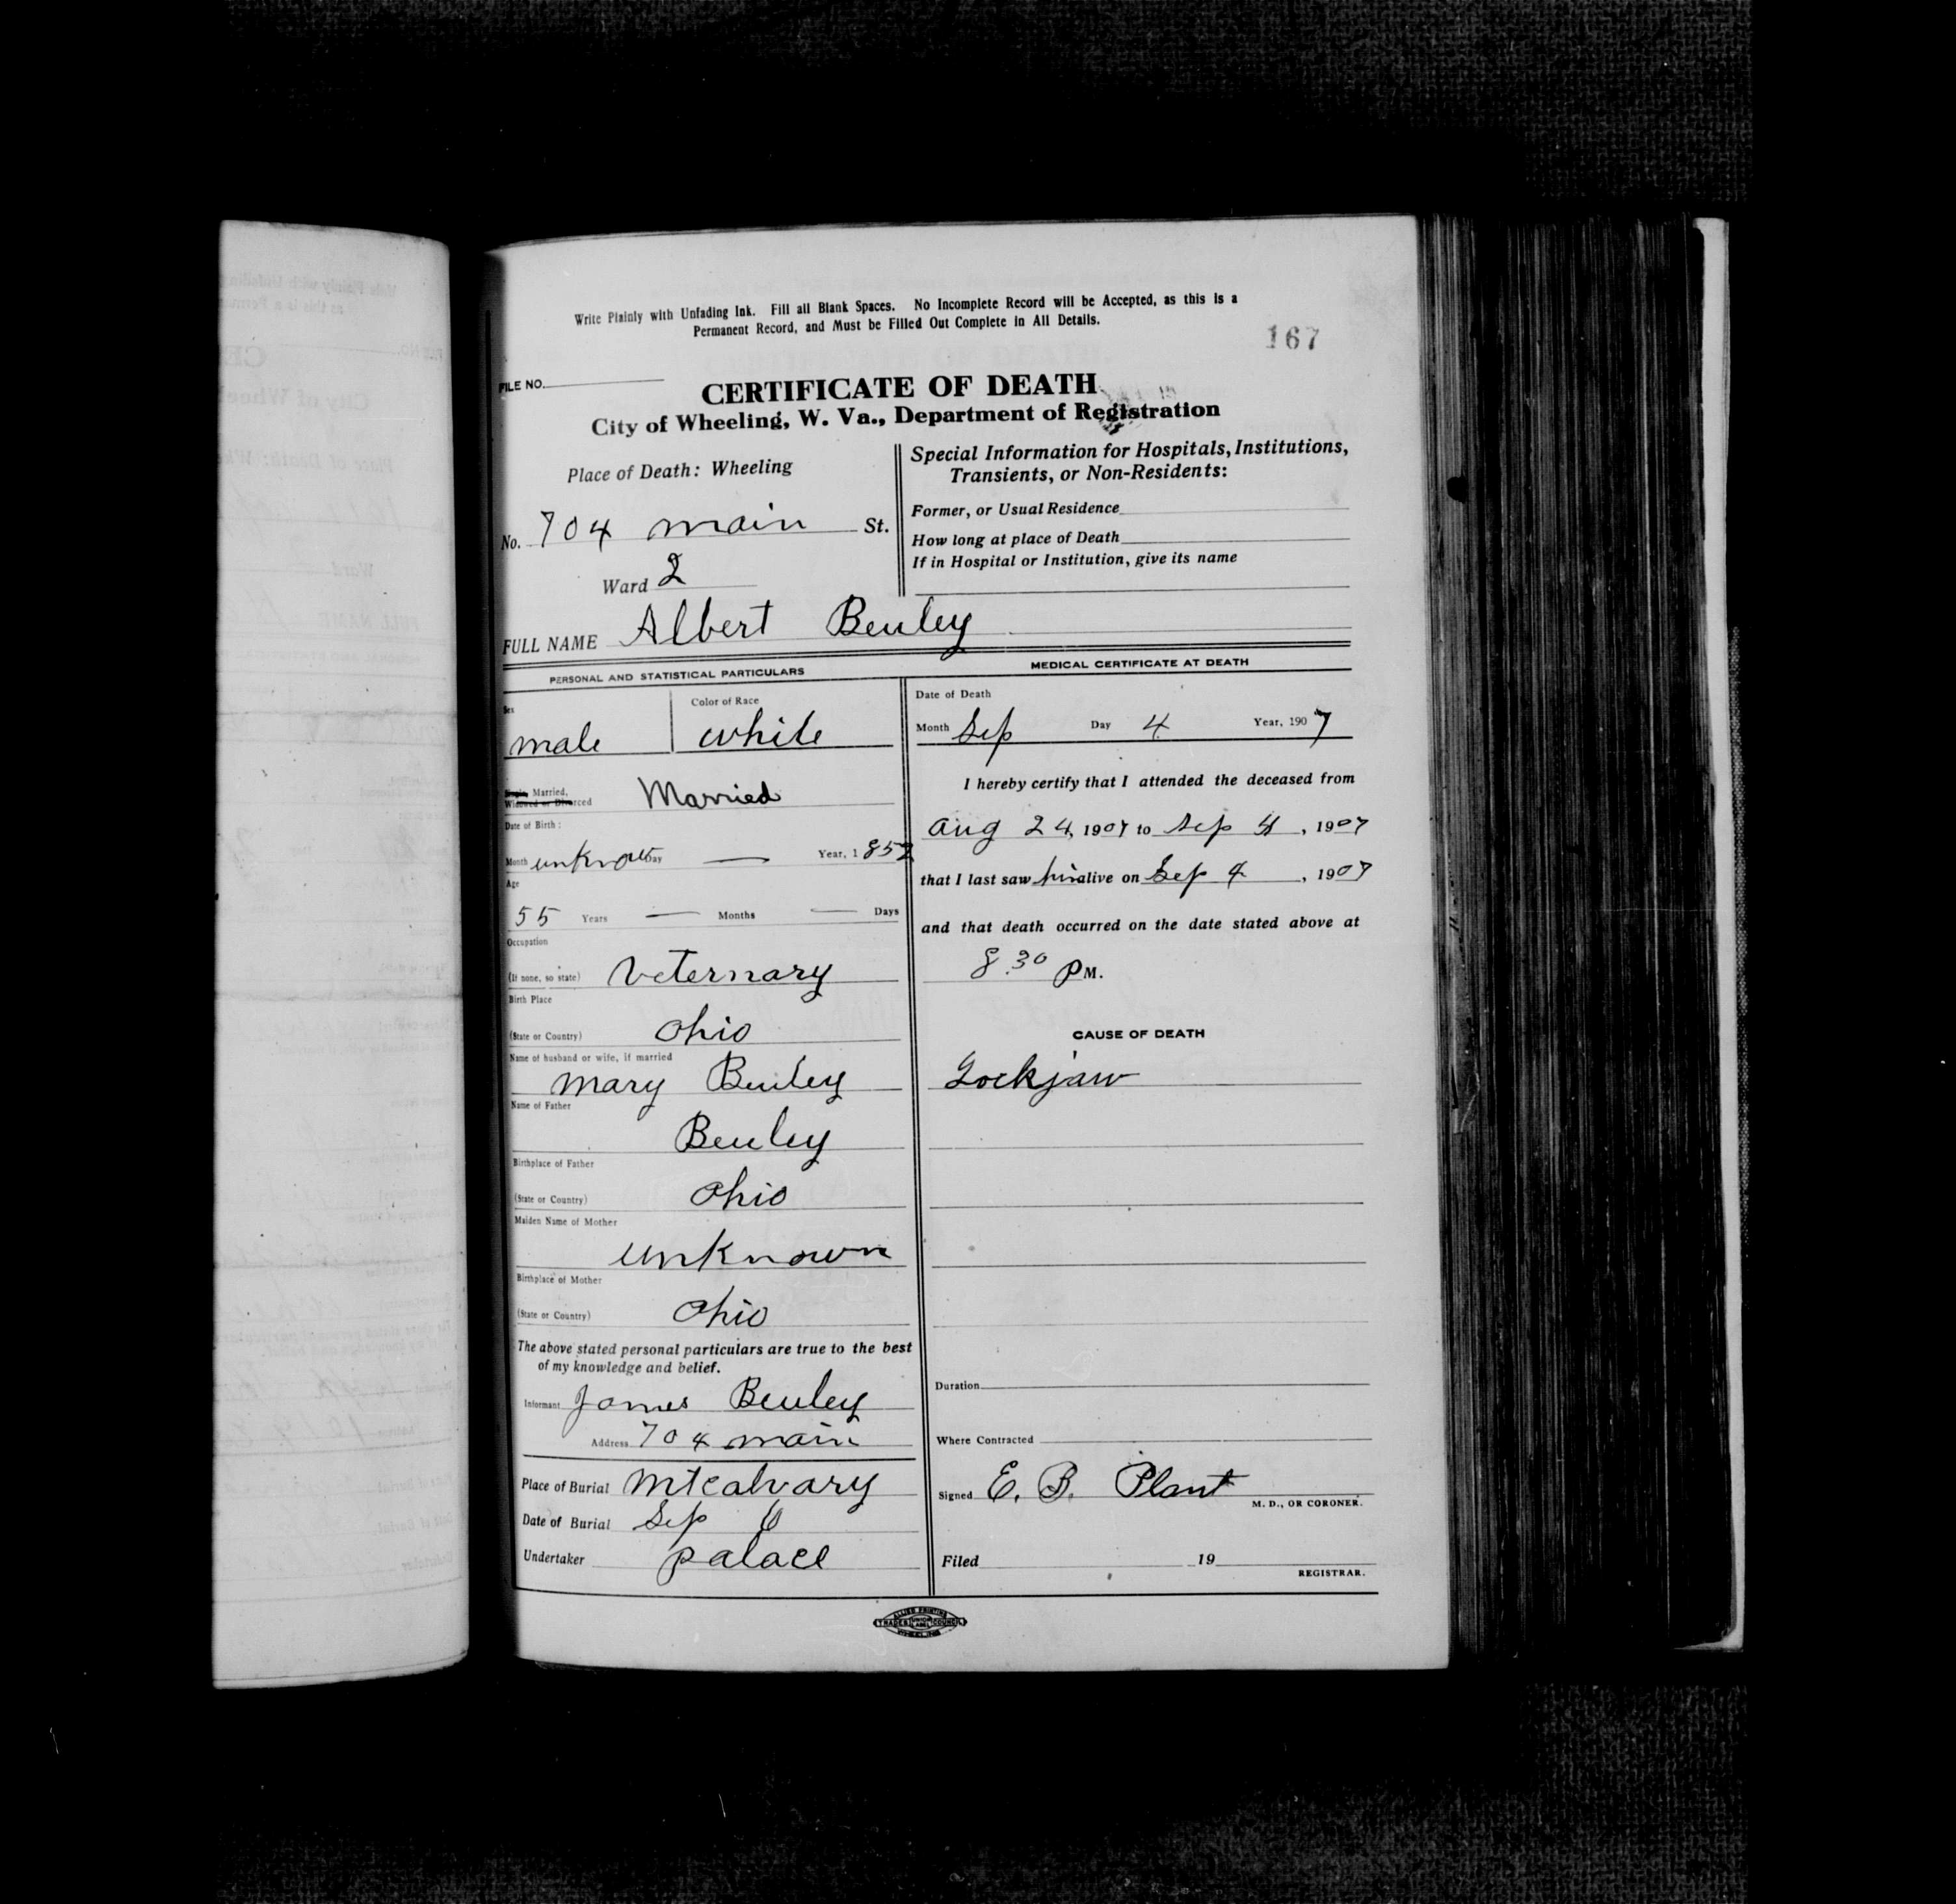 Write Plainly with Unfading Ink. Fill all Blank Spaces. No Incomplete Record will be Accepted, as this is a
Permanent Record, and Must be Filled Out Complete in All Details.
167
FILE NO.
CERTIFICATE OF DEATH
City of Wheeling, W. Va., Department of Registration
Place of Death: Wheeling
No. 704 main St.
Ward 2
Special Information for Hospitals, Institutions,
Transients, or Non-Residents:
Former, or Usual Residence
How long at place of Death
If in Hospital or Institution, give its name
FULL NAME Albert Beuley
PERSONAL AND STATISTICAL PARTICULARS
Sex
Color of Race
male white
Single, Married,
Widowed or Divorced Married
Date of Birth:
Month unknown Day — Year, 1852
Age
55 Years — Months — Days
Occupation
(If none, so state) Veternary
Birth Place
(State or Country) Ohio
Name of husband or wife, if married
Mary Beuley
Name of Father
Beuley
Birthplace of Father
(State or Country) Ohio
Maiden Name of Mother
unknown
Birthplace of Mother
(State or Country) Ohio
The above stated personal particulars are true to the best
of my knowledge and belief.
Informant James Beuley
Address 704 main
Place of Burial Mt calvary
Date of Burial Sep 6
Undertaker palace
MEDICAL CERTIFICATE AT DEATH
Date of Death
Month Sep Day 4 Year, 1907
I hereby certify that I attended the deceased from
Aug 24, 1907 to Sep 4, 1907
that I last saw him alive on Sep 4, 1907
and that death occurred on the date stated above at
8.30 PM.
CAUSE OF DEATH
Lockjaw
Duration
Where Contracted
Signed E. B. Plant
M. D., OR CORONER.
Filed 19
REGISTRAR.
ALLIED PRINTING
TRADES UNION LABEL COUNCIL
WHEELING